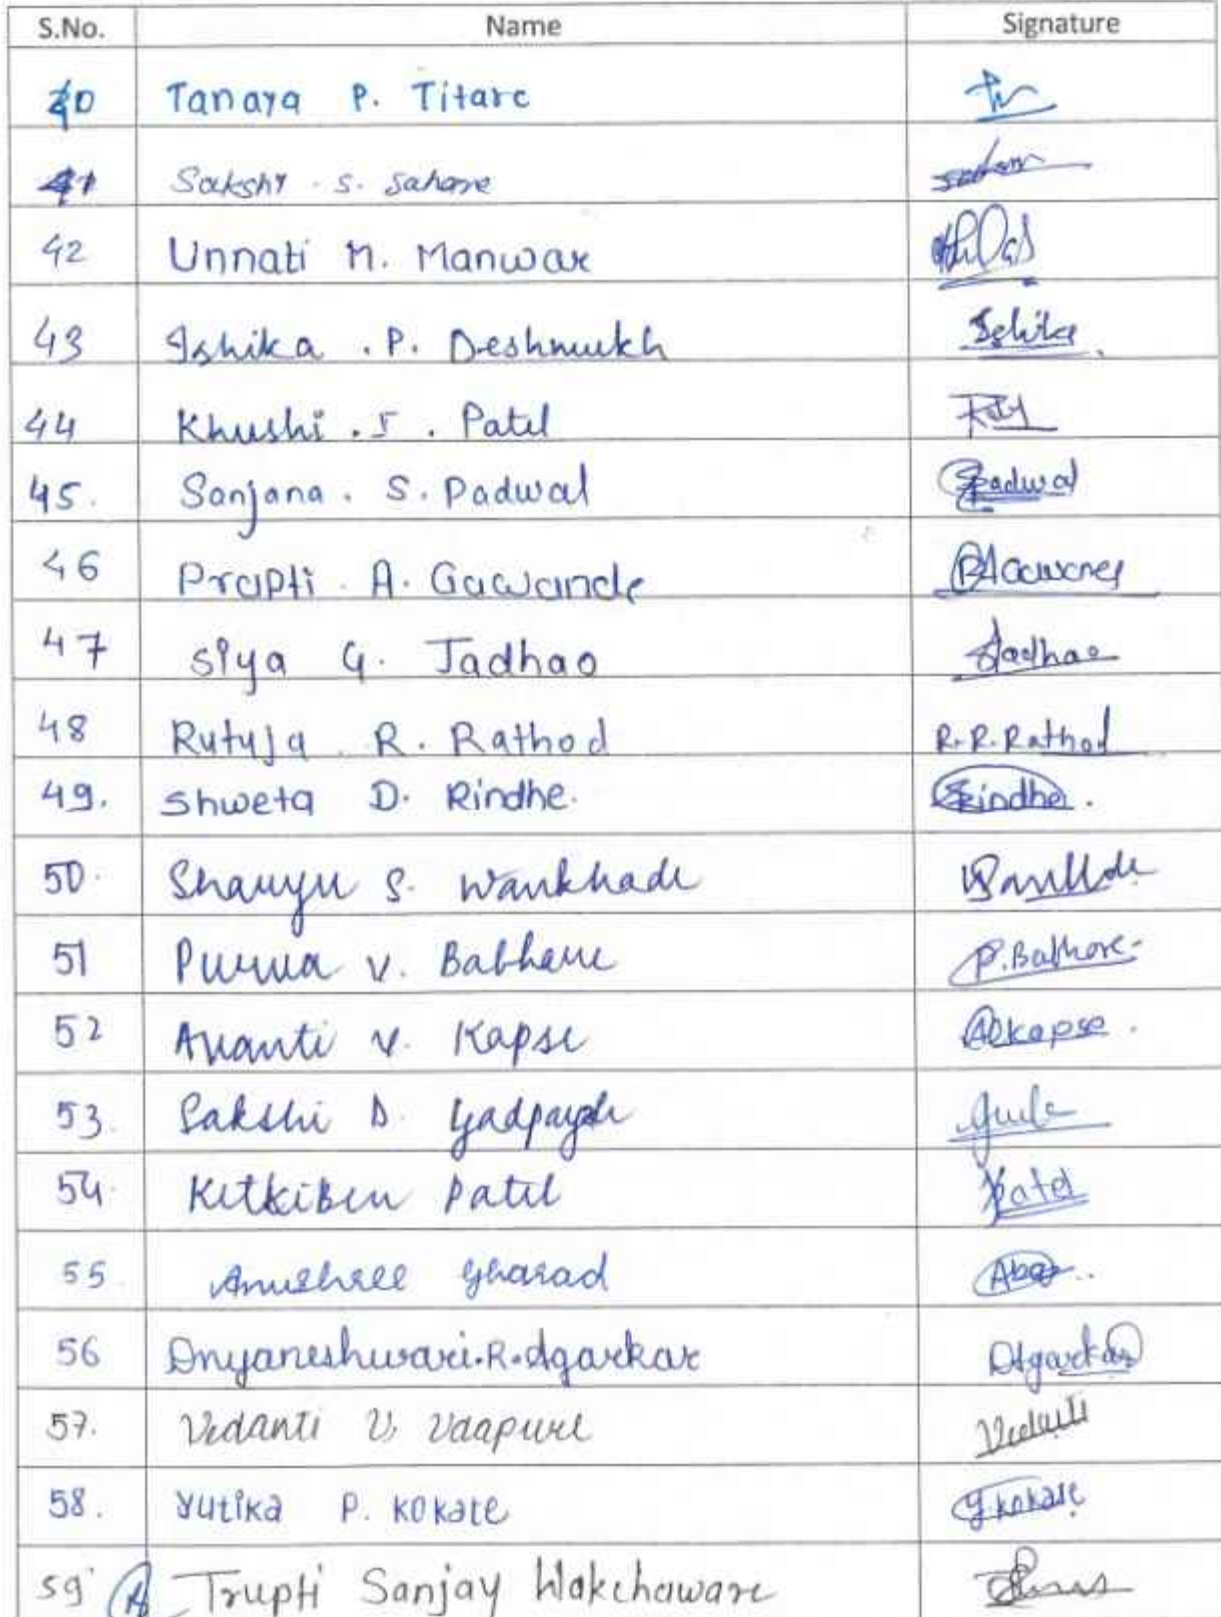 S.No. Name Signature
40 Tanaya P. Titare
41 Sakshy . S. Sahare
42 Unnati M. Manwar
43 Ishika . P. Deshmukh Ishika
44 Khushi . . Patil
45. Sanjana . S. Padwal Spadwal
46 Prapti . A. Gawande
47 Siya G. Jadhao Jadhao
48 Rutuja R. Rathod R.R.Rathod
49. Shweta D. Rindhe. Rindhe .
50. Sharyu S. Wankhade
51 Purva V. Babhere P.Babhore
52 Avanti V. Kapse Akapse .
53. Sakshi D.
54. Ketkiben Patil Patel
55 Anushree Gharad
56 Dnyaneshwari.R.Agarkar DAgarkar
57. Vedanti V. Vaapure Vedanti
58. Yutika P. Kokate Y.Kokate
59 Trupti Sanjay Wakchaware